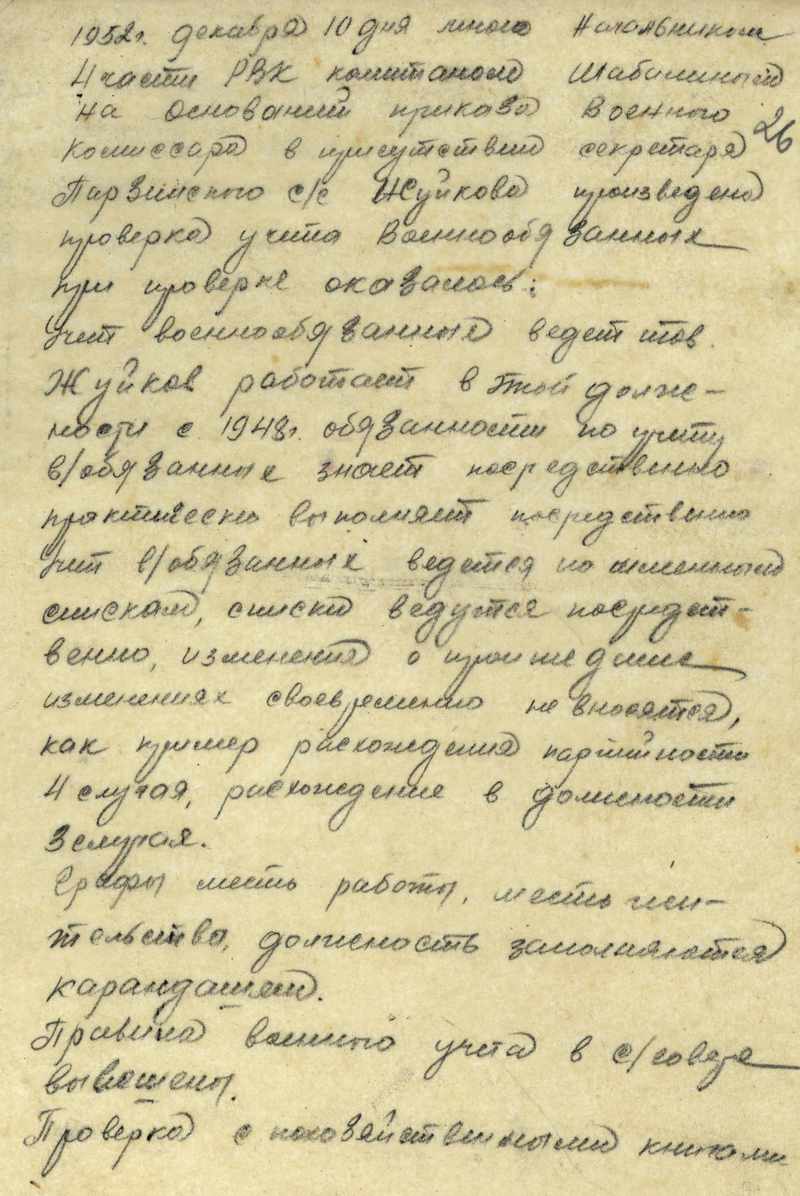 1952г. декабря 10 дня мною Начальником
4 части РВК капитаном Шабалиным
на основании приказа Военного
26
комиссара в присутствии секретаря
Парзинского с/с Жуйкова произведена
проверка учета Военнообязанных
при проверке оказалось:
Учет военнообязанных ведет тов.
Жуйков работает в этой долж-
ности с 1948г. обязанности по учету
в/обязанных знает посредственно
практически выполняет посредственно
Учет в/обязанных ведется по именным
спискам, списки ведутся посредст-
венно, изменения о происшедших
изменениях своевременно не вносятся,
как пример расхождения партийности
4 случая, расхождение в должности
3 случая.
Графы место работы, место жи-
тельства, должность заполняются
карандашем.
Правила военного учета в с/совете
вывешены.
Проверка с похозяйственными книгами